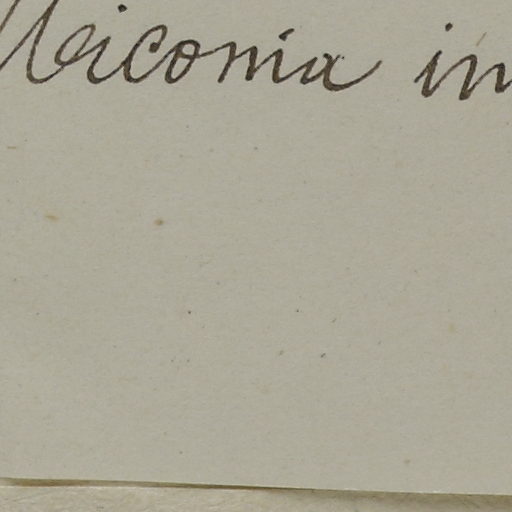 Miconia in